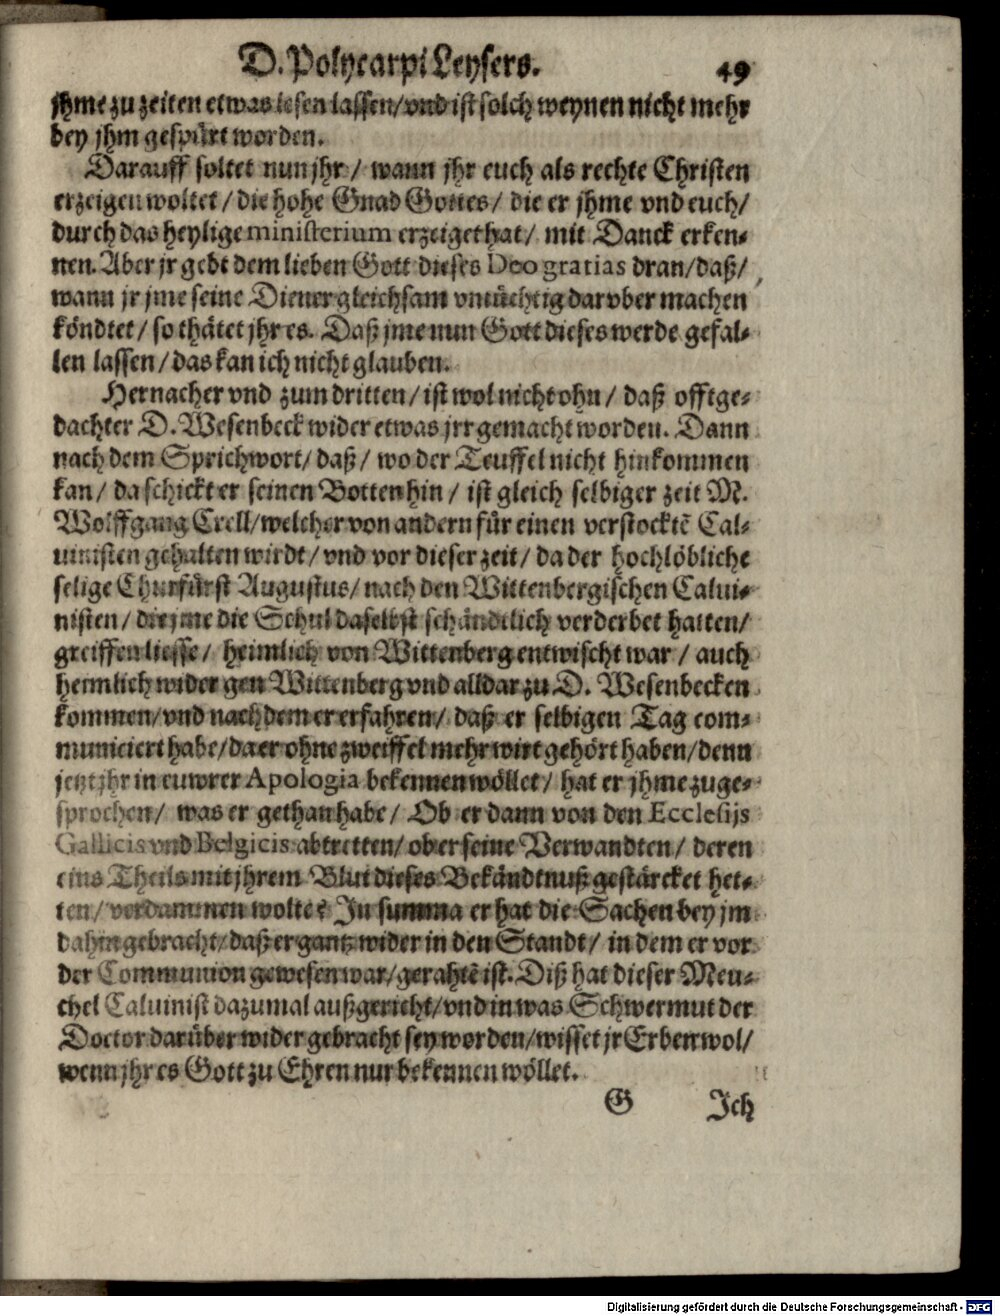 D. Polycarpi Leysers. 49
jhme zu zeiten etwas lesen lassen/ vnd ist solch weynen nicht mehr
bey jhm gespürt worden.
Darauff soltet nun jhr/ wann jhr euch als rechte Christen
erzeigen woltet/ die hohe Gnad Gottes/ die er jhme vnd euch/
durch das heylige ministerium erzeiget hat/ mit Danck erken-
nen. Aber jr gebt dem lieben Gott dieses Deo gratias dran/ daß/
wann jr jme seine Diener gleichsam vntüchtig darvber machen
köndtet/ so thätet jhr es. Daß jme nun Gott dieses werde gefal-
len lassen/ das kan ich nicht glauben.
Hernacher vnd zum dritten/ ist wol nicht ohn/ daß offtge-
dachter D. Wesenbeck wider etwas jrr gemacht worden. Dann
nach dem Sprichwort/ daß/ wo der Teuffel nicht hinkommen
kan/ da schickt er seinen Botten hin/ ist gleich selbiger zeit M.
Wolffgang Crell/ welcher von andern für einen verstocktẽ Cal-
uinisten gehalten wirdt/ vnd vor dieser zeit/ da der hochlöbliche
selige Churfürst Augustus/ nach den Wittenbergischen Calui-
nisten/ die jme die Schul daselbst schändtlich verderbet hatten/
greiffen liesse/ heimlich von Wittenberg entwischt war/ auch
heimlich wider gen Wittenberg vnd alldar zu D. Wesenbecken
kommen/ vnd nach dem er erfahren/ daß er selbigen Tag com-
municiert habe/ da er ohne zweiffel mehr wirt gehört haben/ denn
jetzt jhr in euwrer Apologia bekennen wöllet/ hat er jhme zuge-
sprochen/ was er gethan habe/ Ob er dann von den Ecclesijs
Gallicis vnd Belgicis abtretten/ ob er seine Verwandten/ deren
eins Theils mit jhrem Blut dieses Bekändtnuß gestärcket het-
ten/ verdammen wolte? In summa er hat die Sachen bey jm
dahin gebracht/ daß er gantz wider in den Standt/ in dem er vor
der Communion gewesen war/ gerahtẽ ist. Diß hat dieser Meu-
chel Caluinist dazumal außgericht/ vnd in was Schwermut der
Doctor darüber wider gebracht sey worden/ wisset jr Erben wol/
wenn jhr es Gott zu Ehren nur bekennen wöllet.
G Ich
Digitalisierung gefördert durch die Deutsche Forschungsgemeinschaft - DFG